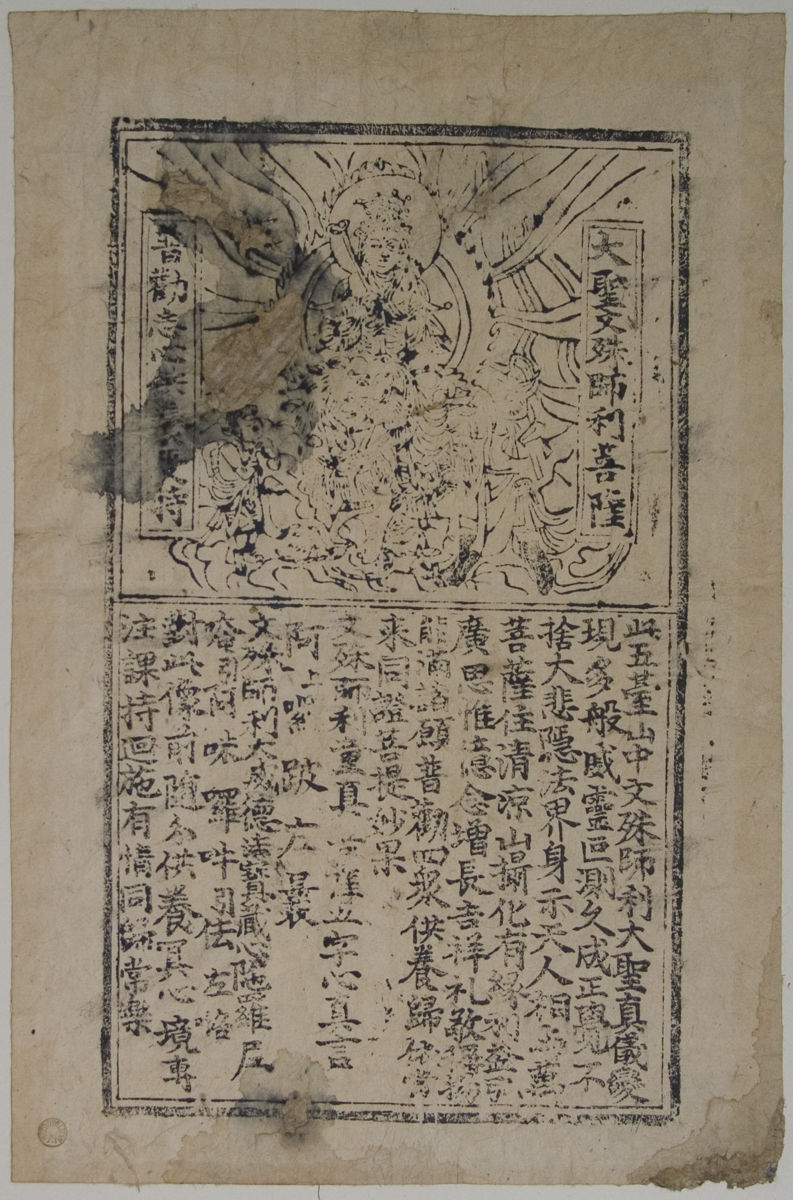 大聖文殊師利菩薩
普勸志心供養受持
此五臺山中文殊師利大聖真儀變
現多般威靈叵測久成正覺不
捨大悲隱法界身示天人相與萬
菩薩住清涼山攝化有緣利益弘
廣思惟憶念增長吉祥礼敬稱揚
能滿諸願普勸四衆供養歸依當
來同證菩提妙果
文殊師利童真 祥五字心真言
阿上囉 跛 左 曩
文殊師利大威德法寶藏心陁羅尼
唵引阿味囉吽引佉左洛
對此像前隨分供養冥心一境專
注課持迴施有情同歸常樂